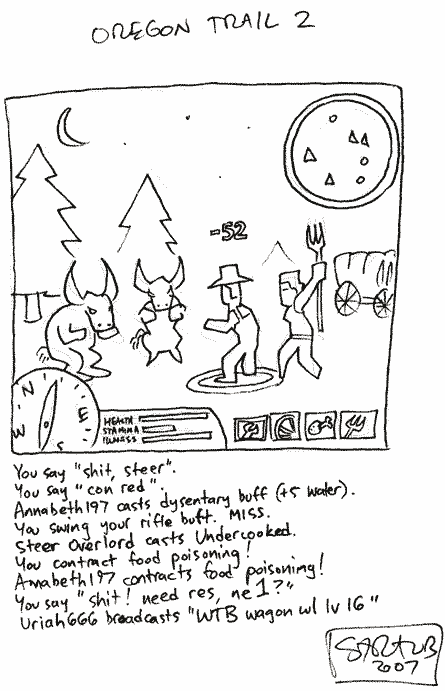 OREGON TRAIL 2
-52
N
E
S
W
HEALTH
STAMINA
ILLNESS
You say "shit, steer".
You say "con red".
Annabeth197 casts dysentary buff (+5 water).
You swing your rifle butt. MISS.
Steer Overlord casts Undercooked.
You contract food poisoning!
Annabeth197 contracts food poisoning!
You say "shit! need res, ne1?"
Uriah666 broadcasts "WTB wagon wl lv 16"
2007